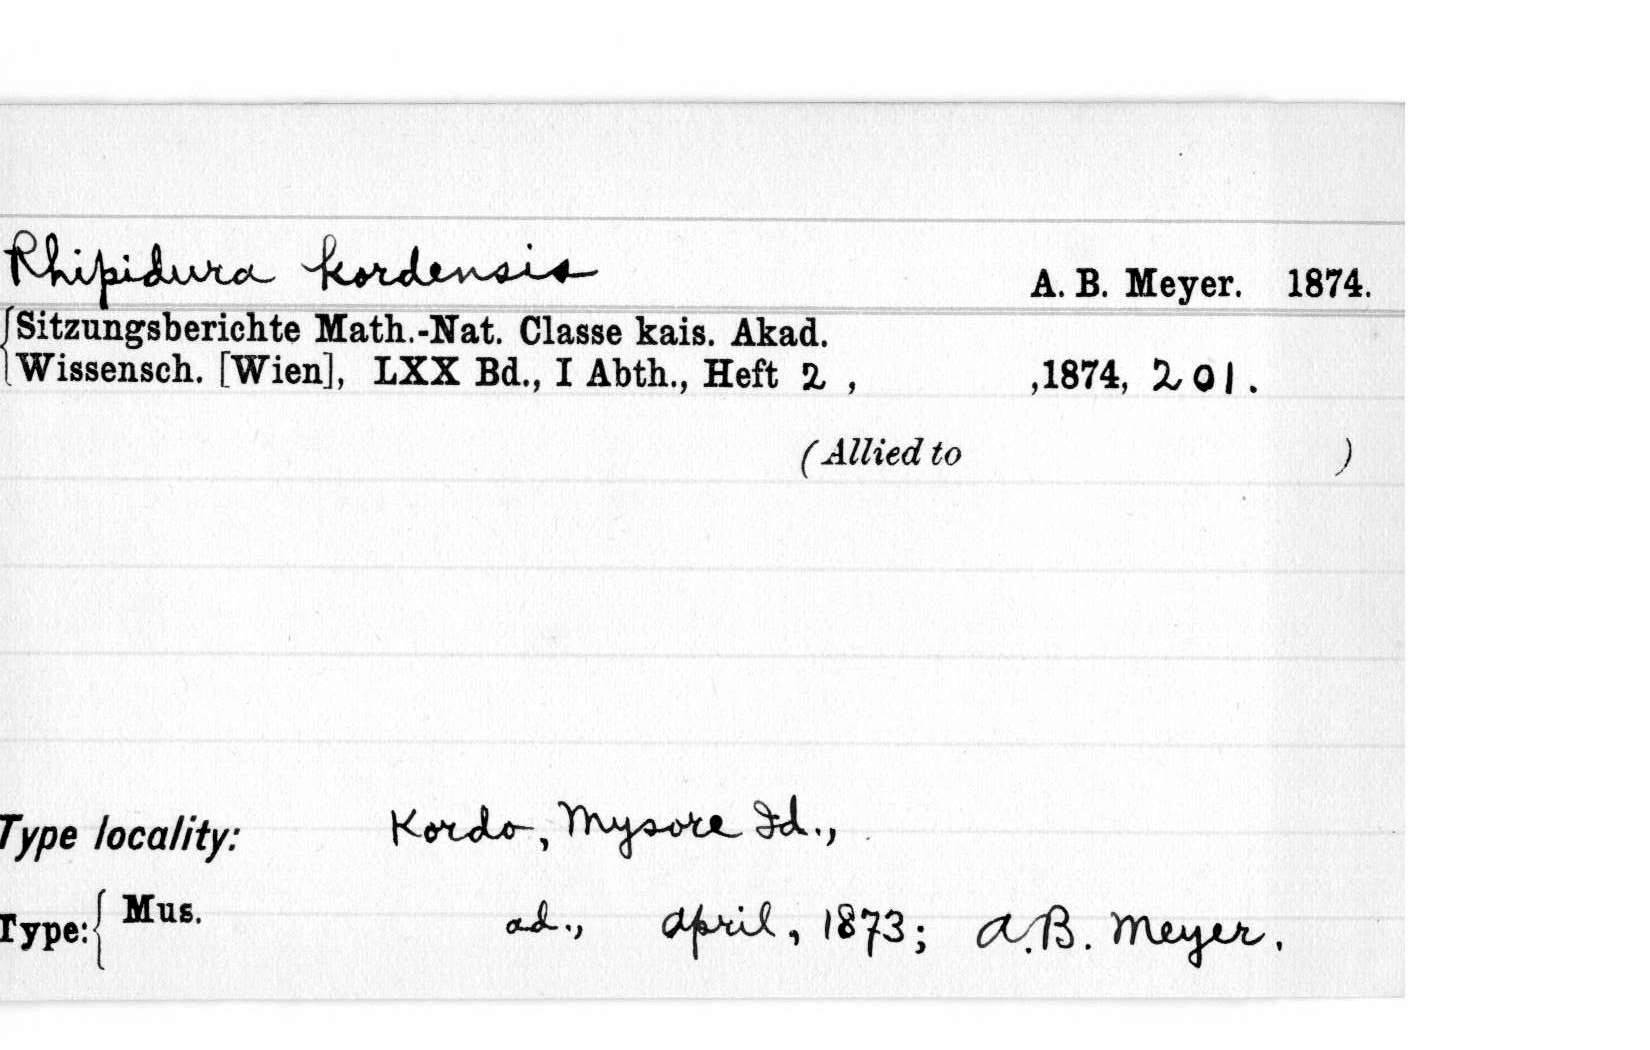 Rhipidura kordensis A. B. Meyer. 1874.
Sitzungsberichte Math.-Nat. Classe kais. Akad.
Wissensch. [Wien], LXX Bd., I Abth., Heft 2 , ,1874, 201.
(Allied to )
Type locality: Kordo, Mysore Id.,
Type: Mus. ad., April, 1873; A.B. Meyer.